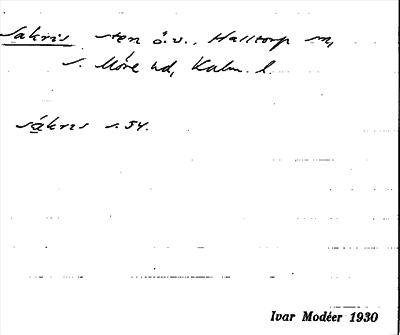 Sakris sten ö.v., Halltorp sn,
s. Möre hd, Kalm. l.
sákris s. 54.
Ivar Modéer 1930